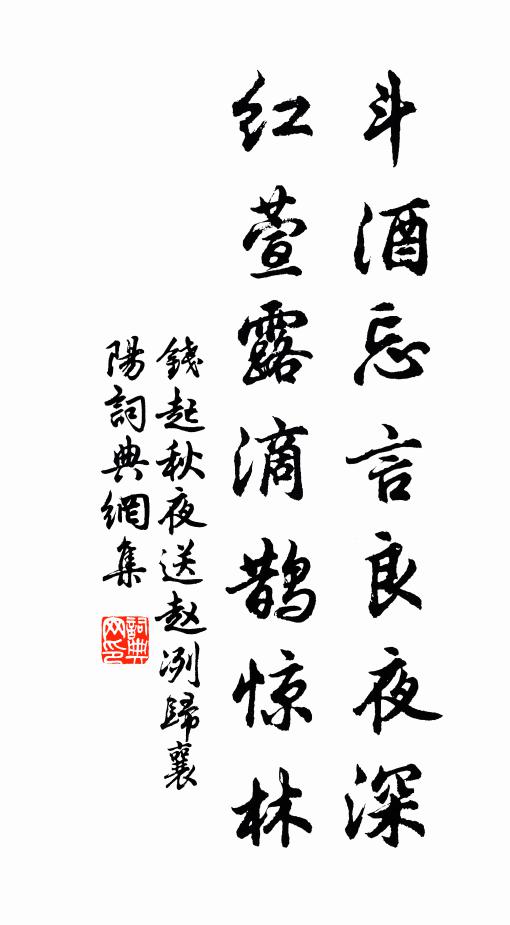 斗酒忘言良夜深
红萱露滴鹊惊林
錢起秋夜送赵冽歸襄
陽詞典網集
詞典
网印